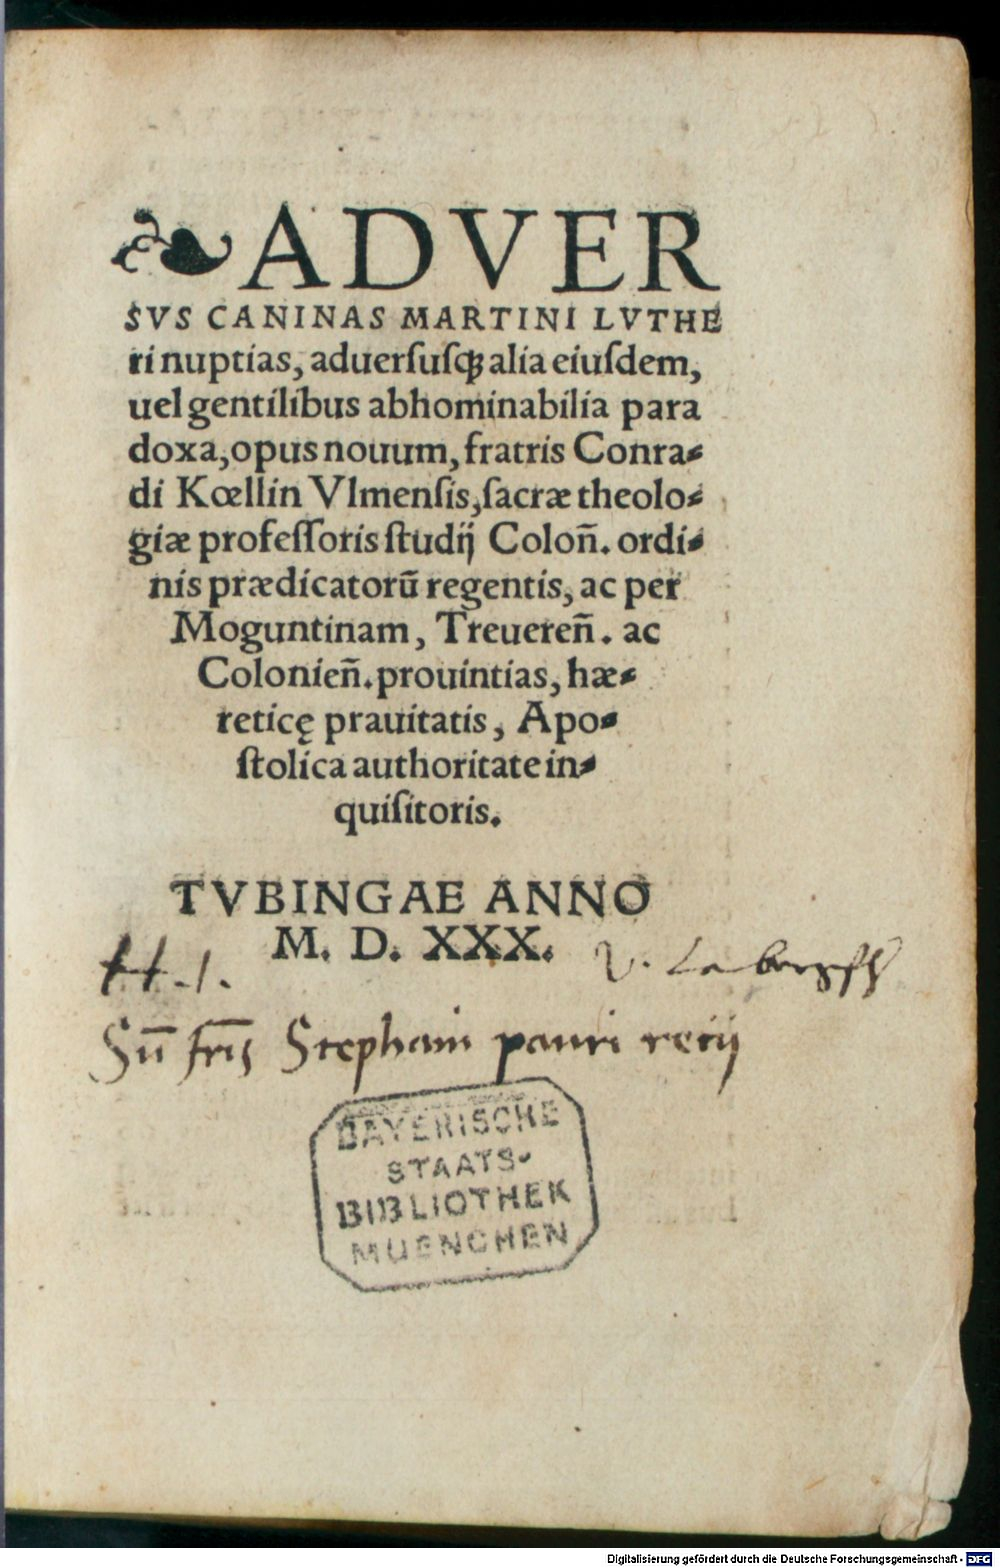 ❧ ADVER
SVS CANINAS MARTINI LVTHE
ri nuptias, aduersusqꝫ alia eiusdem,
uel gentilibus abhominabilia para
doxa, opus nouum, fratris Conra-
di Kœllin Vlmensis, sacræ theolo-
giæ professoris studij Coloñ. ordi-
nis prædicatorũ regentis, ac per
Moguntinam, Treuereñ. ac
Colonieñ. prouintias, hæ-
reticę prauitatis, Apo-
stolica authoritate in-
quisitoris.
TVBINGAE ANNO
M. D. XXX.
H. 1.
Sũ fr̃is Stephani
BAYERISCHE
STAATS-
BIBLIOTHEK
MUENCHEN
Digitalisierung gefördert durch die Deutsche Forschungsgemeinschaft - DFG